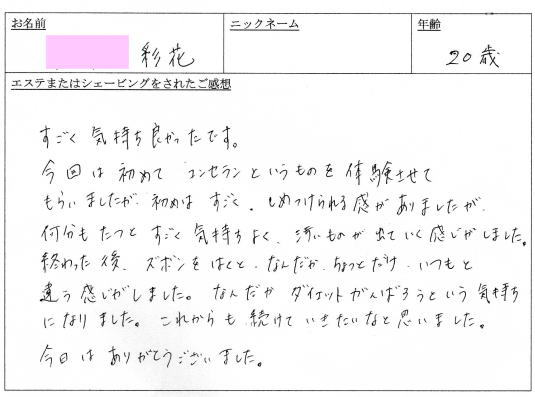 お名前
ニックネーム
年齢
彩花
20歳
エステまたはシェービングをされたご感想
すごく気持ち良かったです。
今回は初めてコンセランというものを体験させて
もらいましたが、初めはすごく、しめつけられる感がありましたが、
何分もたつとすごく気持ちよく、汚いものが出ていく感じがしました。
終わった後、ズボンをはくと、なんだか、ちょっとだけ、いつもと
違う感じがしました。なんだかダイエットがんばろうという気持ち
になりました。これからも続けていきたいなと思いました。
今日はありがとうございました。